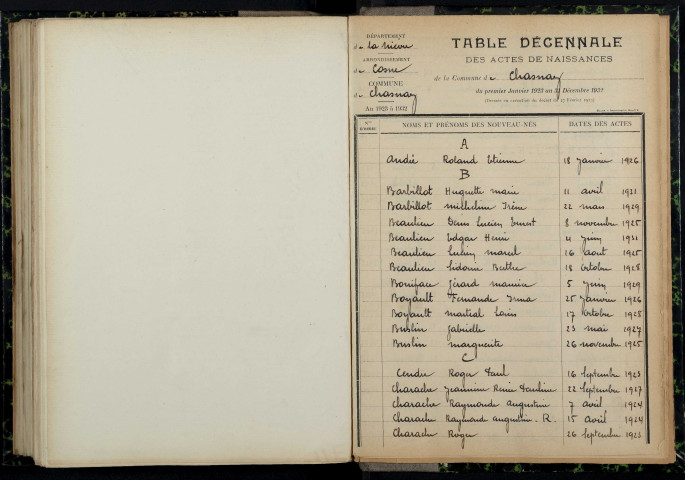 DÉPARTEMENT
de la Nièvre
ARRONDISSEMENT
de Cosne
COMMUNE
de Chasnay
An 1923 à 1932
TABLE DÉCENNALE
DES ACTES DE NAISSANCES
de la Commune de Chasnay
du premier Janvier 1923 au 31 Décembre 1932
NOMS ET PRÉNOMS DES NOUVEAU-NÉS DATES DES ACTES
A
André Roland Etienne 18 Janvier 1926
B
Barbillot Huguette marie 11 avril 1931
Barbillot micheline Irène 22 mars 1929
Beaulieu Denis Lucien Ernest 8 novembre 1925
Beaulieu Edgar Henri 4 Juin 1931
Beaulieu Lucien marcel 16 août 1925
Beaulieu Sidonie Berthe 18 octobre 1928
Boniface Gérard maurice 5 Juin 1929
Boyault Fernande Irma 25 Janvier 1926
Boyault martial Louis 17 octobre 1928
Buslin Gabrielle 23 mai 1927
Buslin marguerite 26 novembre 1925
C
Cendre Roger Paul 16 Septembre 1923
Charache Jeannine Renée 22 Septembre 1927
Charache Raymonde augustine 7 avril 1924
Charache Raymond augustin. R. 15 avril 1924
Charache Roger 26 Septembre 1923